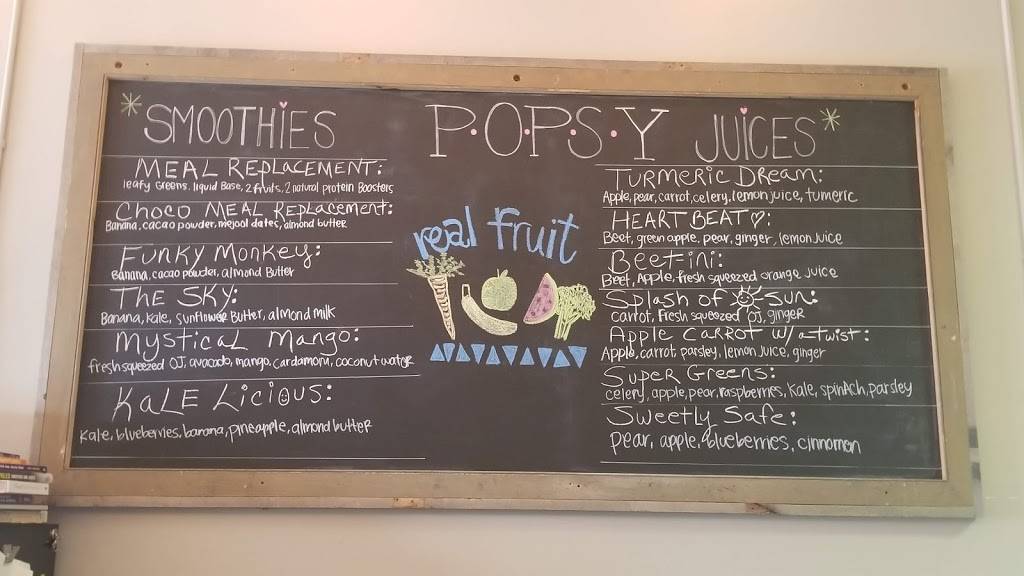 SMOOTHIES
MEAL REPLACEMENT:
leafy Greens, liquid Base, 2 fruits, 2 natural protein Boosters
Choco MEAL Replacement:
Banana, cacao powder, mejool dates, almond butter
Funky Monkey:
Banana, cacao powder, almond Butter
The SKY:
Banana, kale, sunflower Butter, almond milk
Mystical Mango:
fresh squeezed OJ, avocado, mango, cardamom, coconut water
KALE Licious:
Kale, blueberries, banana, pineapple, almond butter
P.O.P.S.Y
real fruit
JUICES
TURMERIC DREAM:
Apple, pear, carrot, celery, lemon juice, tumeric
HEART BEAT♡:
Beet, green apple, pear, ginger, lemon juice
Beet-ini:
Beet, Apple, fresh squeezed orange juice
Splash of SUN:
carrot, fresh squeezed OJ, ginger
Apple Carrot w/ a twist:
Apple, carrot, parsley, lemon juice, ginger
Super Greens:
celery, apple, pear, raspberries, kale, spinach, parsley
Sweetly Safe:
pear, apple, blueberries, cinnomon